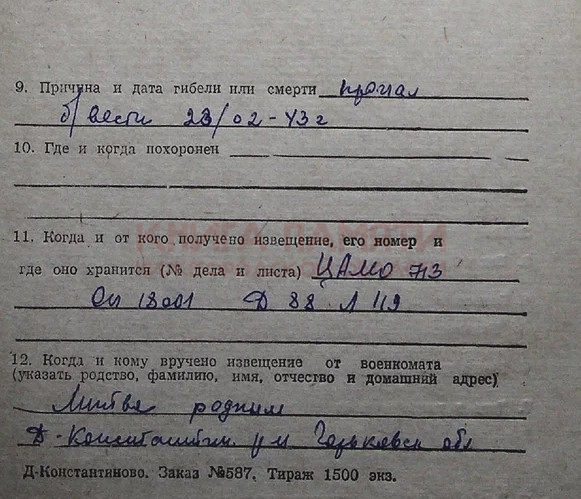 9. Причина и дата гибели или смерти пропал
б/вести 23/02-43 г
10. Где и когда похоронен
КНИГА ПАМЯТИ
11. Когда и от кого получено извещение, его номер и
где оно хранится (№ дела и листа) ЦАМО
Оп 18001 Д 88 Л 119
12. Когда и кому вручено извещение от военкомата
(указать родство, фамилию, имя, отчество и домашний адрес)
родным
Д-Константин. р-н Горьковск обл
Д-Константиново. Заказ №587. Тираж 1500 экз.